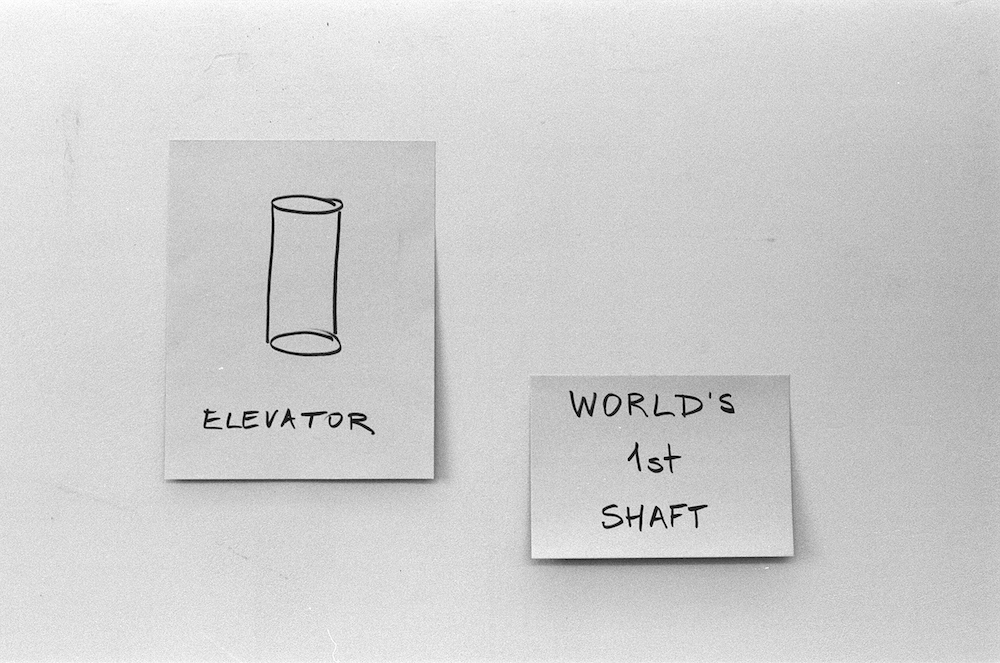 ELEVATOR
WORLD'S
1st
SHAFT